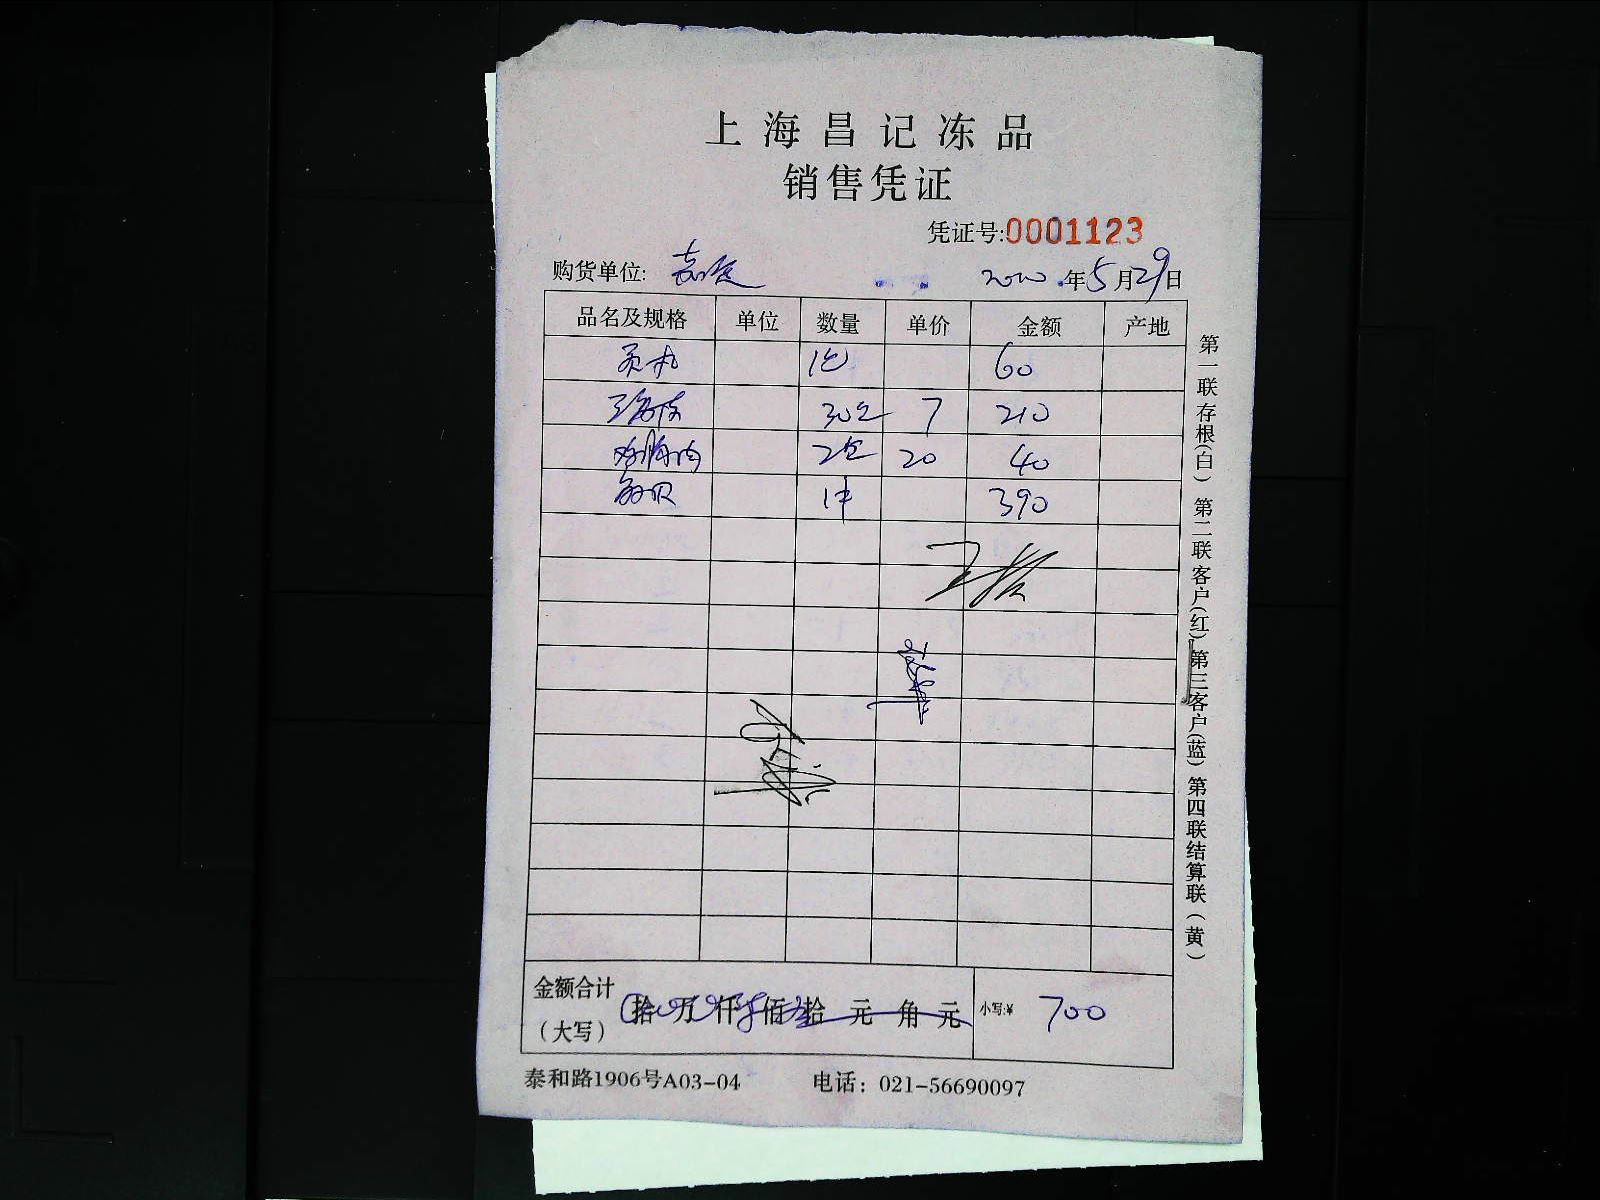 上海昌记冻品
销售凭证
凭证号:0001123
购货单位: 2020.年5月29日
品名及规格 单位 数量 单价 金额 产地
1包 60
30包 7 210
鸡胸肉 2包 20 40
1件 390
金额合计
(大写)
拾 万 仟 佰 拾 元 角 元 小写:¥ 700
泰和路1906号A03-04 电话: 021-56690097
第一联存根(白) 第二联客户(红) 第三客户(蓝) 第四联结算联(黄)